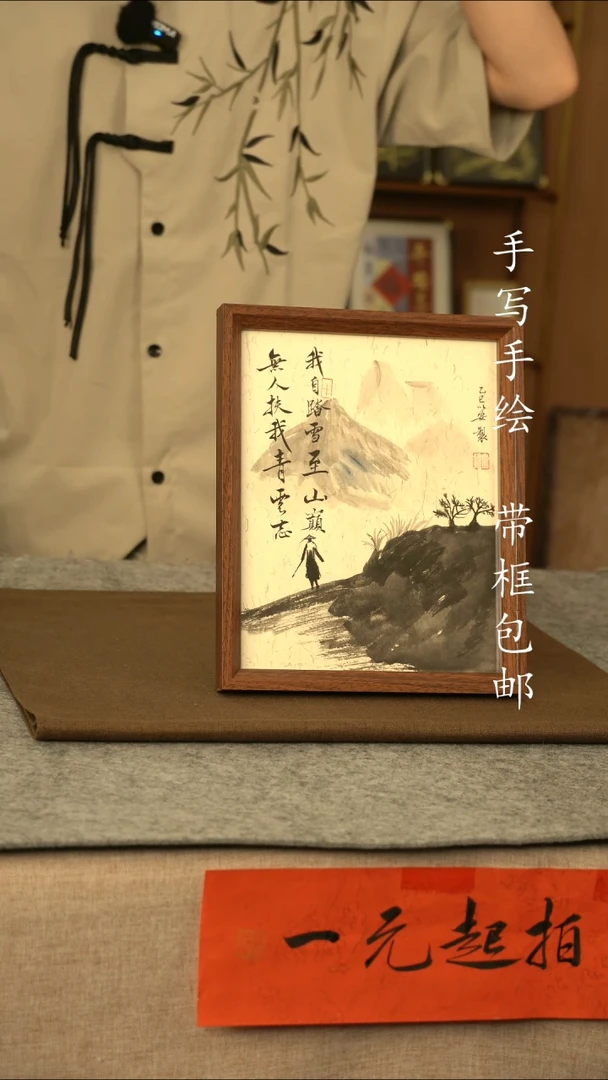 無人扶我青雲志
我自踏雪至山巔
乙巳 製
手写手绘 带框包邮
一元起拍